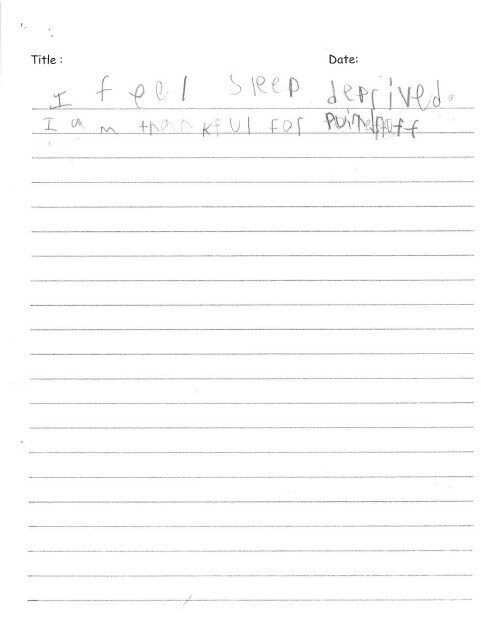 Title : Date:
I feel sleep deprived.
I am thankful for